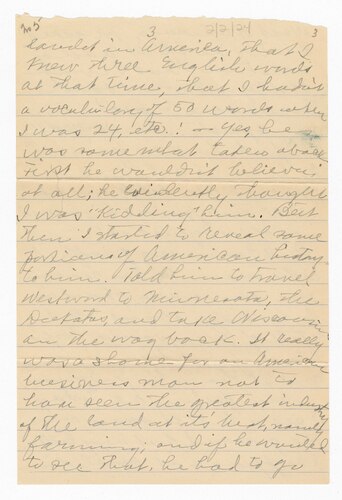 no 5 3 2/2/24 3
landet in America, that I
knew three English words
at that time, that I hadn't
a vocabulary of 50 words when
I was 24, etc.! - Yes, he
was somewhat taken aback.
First he wouldn't believe
at all; he evidently thought
I was "kidding" him. But
then I started to reveal some
portions of American history
to him. Told him to travel
westword to Minnesota, the
Dacotas, and take Wisconsin
on the way back. It really
was a shame for an American
business man not to
have seen the greatest industry
of the land at it's best, namely
farming; and if he wanted
to see that, he had to go